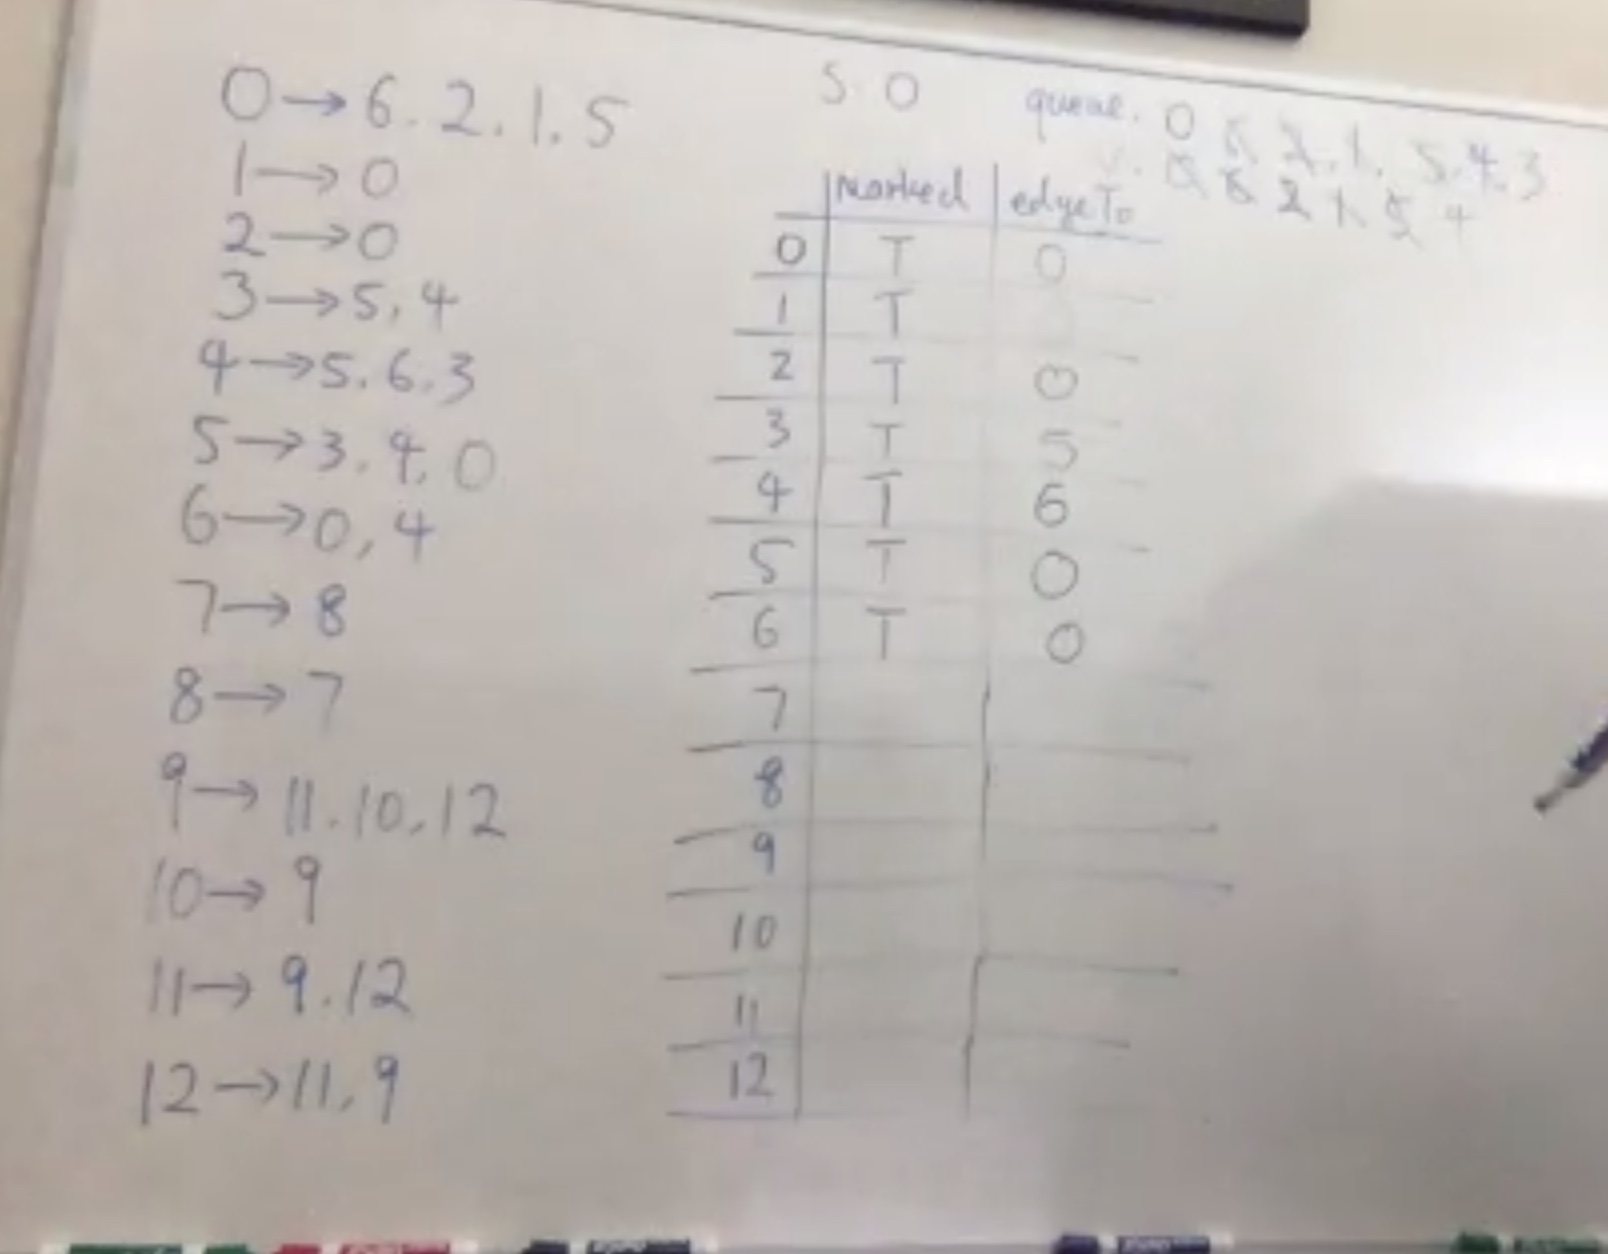 0→6.2.1.5
1→0
2→0
3→5,4
4→5.6.3
5→3.4.0
6→0,4
7→8
8→7
9→11.10.12
10→9
11→9.12
12→11.9
S 0
queue. 0 6 2.1. 5.4.3
v. 0 6 2 1 5 4
marked edgeTo
0 T 0
1 T
2 T 0
3 T 5
4 T 6
5 T 0
6 T 0
7
8
9
10
11
12